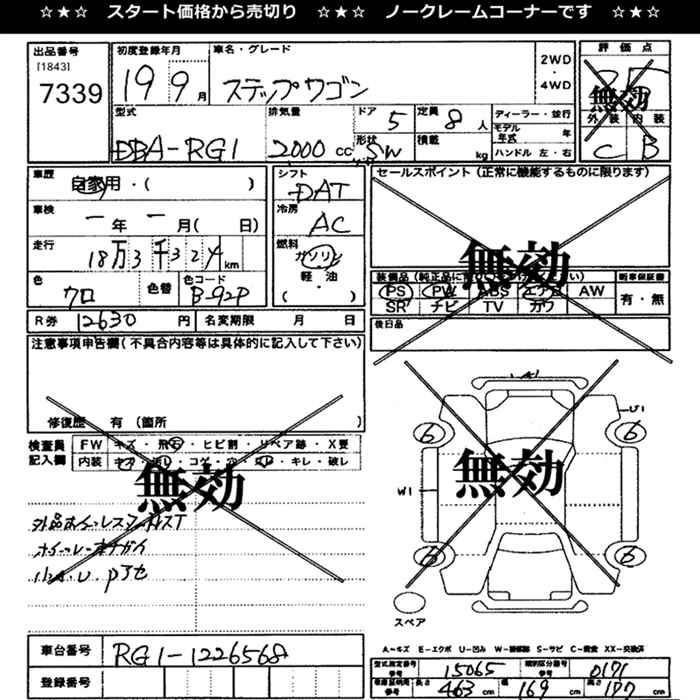 ☆★☆ スタート価格から売切り ☆★☆ ノークレームコーナーです ☆★☆
出品番号
[1843]
7339
初度登録年月
19 9月
車名・グレード
ステップワゴン
2WD
・
4WD
評価点
無効
外装 内装
C B
型式
DBA-RG1
排気量
2000 cc
ドア
5
形状
SW
定員
8 人
積載
kg
ディーラー・並行
モデル年式 年
ハンドル 左・右
車歴
自家用・( )
車検
一年一月( 日)
走行
18万3千324km
色
クロ
色替
色コード
B-92P
シフト
DAT
冷房
AC
燃料
ガソリン
軽・油
( )
セールスポイント(正常に機能するものに限ります)
無効
PS PW ABS エアB AW
SR ナビ TV カワ
新車保証書
有・無
後日品
R券 12630 円
名変期限 月 日
注意事項申告欄(不具合内容等は具体的に記入して下さい)
修復歴 有(箇所 )
検査員記入欄
FW キズ・飛石・ヒビ割・リペア跡・X要
内装 キズ・汚レ・コゲ・穴・ ・キレ・破レ
無効
A1
U1
6 6
W1
無効
6 6
スペア
A-キズ E-エクボ U-凹み W-補修跡 S-サビ C-腐食 XX-交換済
車台番号
RG1-1226568
登録番号
型式指定番号 参考
15065
類別区分番号 参考
0171
長さ
463 cm
幅
169 cm
高さ
177 cm